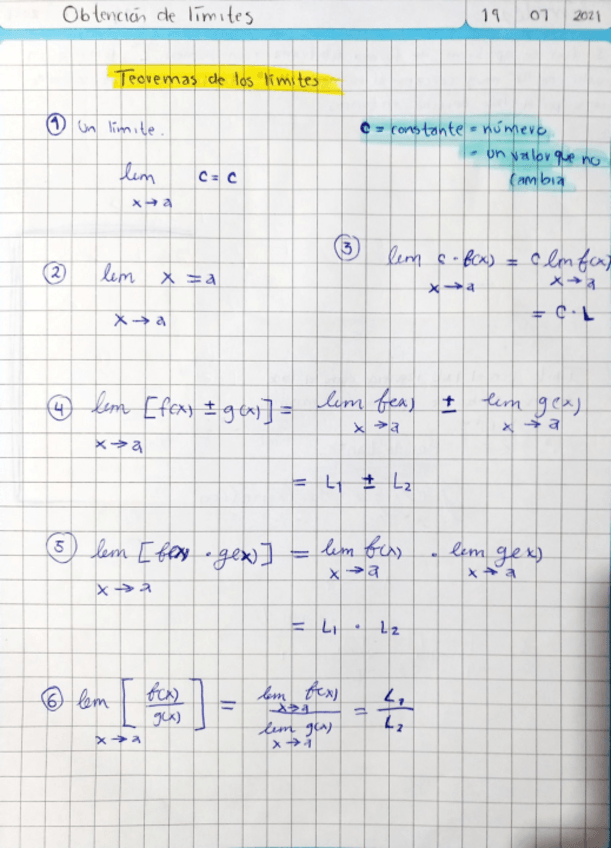 Obtención de límites 19 07 2021
Teoremas de los límites
① Un límite.
c = constante = número
= un valor que no
cambia
lim c = c
x → a
② lim x = a
x → a
③ lim c · f(x) = c lm f(x)
x → a x → a
= c · L
④ lim [f(x) ± g(x)] = lim f(x) ± lim g(x)
x → a x → a x → a
= L₁ ± L₂
⑤ lim [f(x) · g(x)] = lim f(x) · lim g(x)
x → a x → a x → a
= L₁ · L₂
⑥ lim [f(x)/g(x)] = lim f(x) / lim g(x) = L₁/L₂
x → a x → a x → a